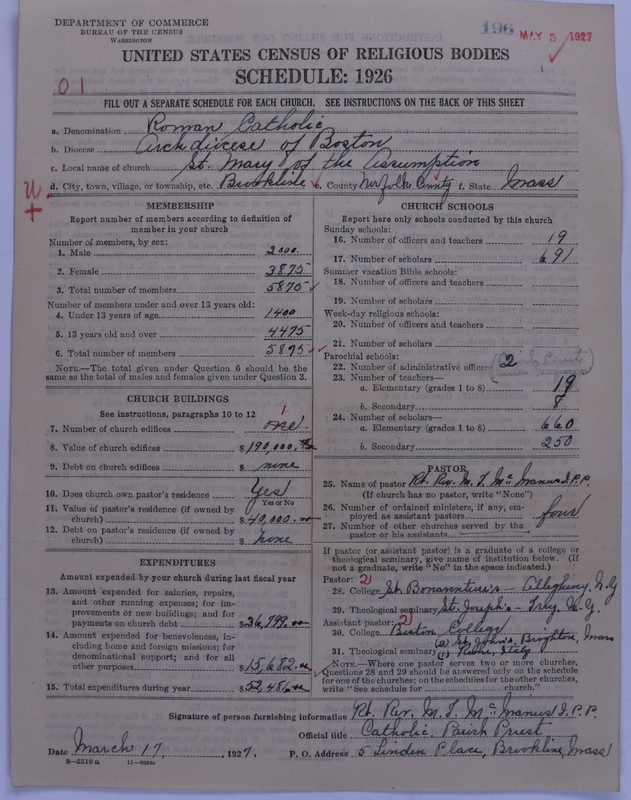 DEPARTMENT OF COMMERCE
BUREAU OF THE CENSUS
WASHINGTON
196 MAY 5 1927
UNITED STATES CENSUS OF RELIGIOUS BODIES
SCHEDULE: 1926
01
FILL OUT A SEPARATE SCHEDULE FOR EACH CHURCH. SEE INSTRUCTIONS ON THE BACK OF THIS SHEET
a. Denomination Roman Catholic
b. Diocese Archdiocese of Boston
c. Local name of church St. Mary of the Assumption
U d. City, town, village, or township, etc. Brookline e. County Norfolk County f. State Mass
MEMBERSHIP
Report number of members according to definition of
member in your church
Number of members, by sex:
1. Male 2000
2. Female 3875
3. Total number of members 5875
Number of members under and over 13 years old:
4. Under 13 years of age 1400
5. 13 years old and over 4495
6. Total number of members 5895
NOTE.—The total given under Question 6 should be
same as the total of males and females given under Question 3.
CHURCH BUILDINGS
See instructions, paragraphs 10 to 12
7. Number of church edifices one 1
8. Value of church edifices $190,000.
9. Debt on church edifices $ none
10. Does church own pastor's residence Yes
Yes or No
11. Value of pastor's residence (if owned by
church) $40,000.00
12. Debt on pastor's residence (if owned by
church) $ none
EXPENDITURES
Amount expended by your church during last fiscal year
13. Amount expended for salaries, repairs,
and other running expenses; for im-
provements or new buildings; and for
payments on church debt $36,799.00
14. Amount expended for benevolences, in-
cluding home and foreign missions; for
denominational support; and for all
other purposes $15,682.00
15. Total expenditures during year $52,481.00
CHURCH SCHOOLS
Report here only schools conducted by this church
Sunday schools:
16. Number of officers and teachers 19
17. Number of scholars 691
Summer vacation Bible schools:
18. Number of officers and teachers
19. Number of scholars
Week-day religious schools:
20. Number of officers and teachers
21. Number of scholars
Parochial schools:
22. Number of administrative officers 2
23. Number of teachers—
a. Elementary (grades 1 to 8) 19
b. Secondary 8
24. Number of scholars—
a. Elementary (grades 1 to 8) 660
b. Secondary 250
PASTOR
25. Name of pastor Rt. Rev. M. T. McManus P.P.
(If church has no pastor, write "None")
26. Number of ordained ministers, if any, em-
ployed as assistant pastors four
27. Number of other churches served by the
pastor or his assistants
If pastor (or assistant pastor) is a graduate of a college or
theological seminary, give name of institution below. (If
not a graduate, write "No" in the space indicated.)
Pastor: 2
28. College St. Bonaventure's - Allegheny, N.Y
29. Theological seminary St. Joseph's - Troy, N.Y.
Assistant pastor: 2
30. College Boston College
(2) St. John's, Brighton, Mass
31. Theological seminary (1) Rome, Italy
NOTE.—Where one pastor serves two or more churches,
Questions 28 and 29 should be answered only on the schedule
for one of the churches; on the schedules for the other churches,
write "See schedule for church."
Signature of person furnishing information Rt. Rev. M. T. McManus P.P.
Official title Catholic Parish Priest
Date March 17, 1927. P. O. Address 5 Linden Place, Brookline, Mass
8—5518a